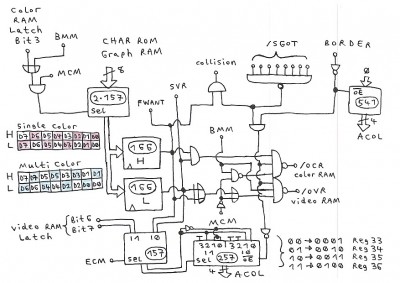 Color
RAM
Latch
Bit3
BMM
MCM
CHAR ROM
Graph RAM
8
2·157
sel
/SGOT
BORDER
collision
SVR
FWANT
0
OE
541
4
ACOL
Single Color
H D7 D6 D5 D4 D3 D2 D1 D0
L D7 D6 D5 D4 D3 D2 D1 D0
Multi Color
H D7 D7 D5 D5 D3 D3 D1 D1
L D6 D6 D4 D4 D2 D2 D0 D0
166
H
166
L
BMM
0/OCR
color RAM
0/OVR
video RAM
video RAM
Latch
Bit6
Bit7
11 10
sel 157
ECM
MCM
3210 3210
sel 257 OE
4 ACOL
00→0001 Reg33
01→0010 Reg34
10→0011 Reg35
11→0100 Reg36